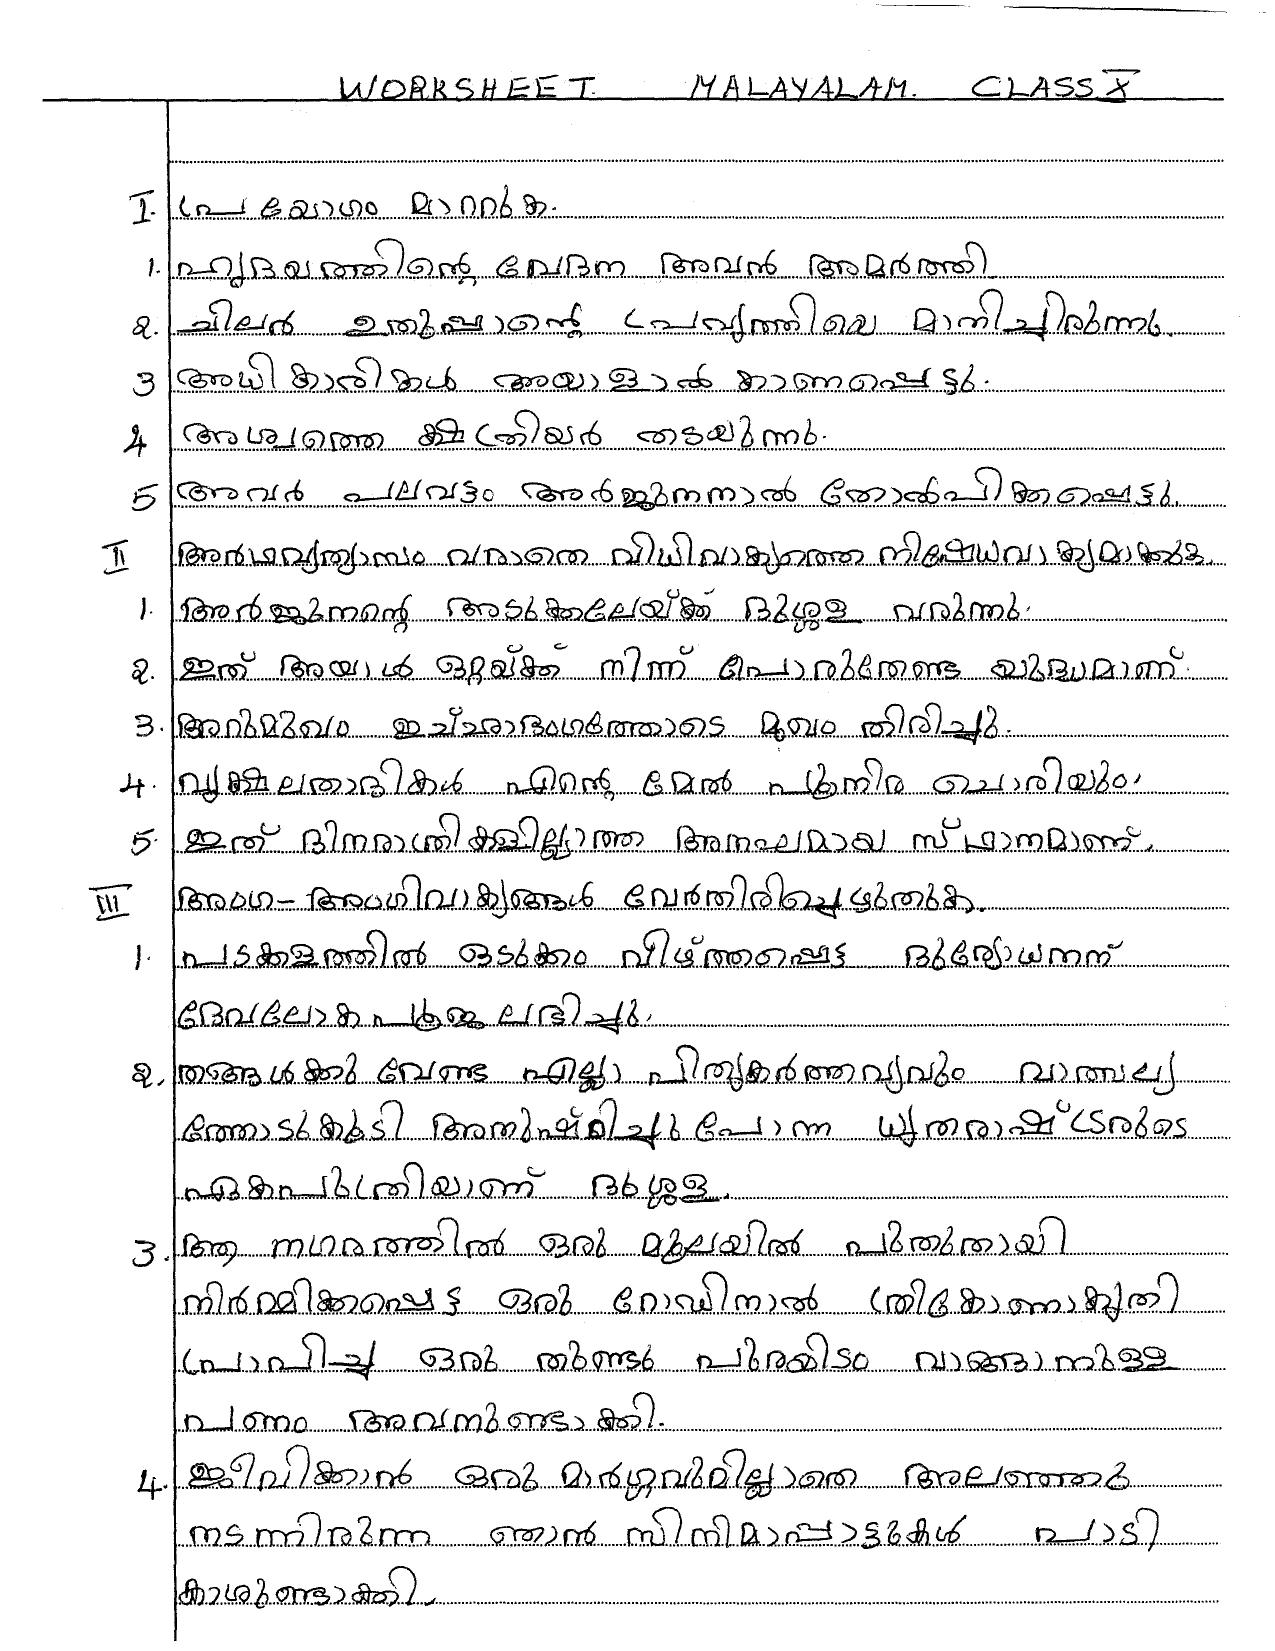 WORKSHEET. MALAYALAM. CLASS X
I. പ്രയോഗം മാററുക.
1. ഹൃദയത്തിന്റെ വേദന അവൻ അമർത്തി
2. ചിലർ ഉതുപ്പാന്റെ പ്രവൃത്തിയെ മാനിച്ചിരുന്നു.
3 അധികാരികൾ അയാളാൽ കാണപ്പെട്ടു.
4 അശ്വത്തെ ക്ഷത്രിയർ തടയുന്നു.
5 അവർ പലവട്ടം അർജ്ജുനനാൽ തോൽപിക്കപ്പെട്ടു.
II അർഥവ്യത്യാസം വരാതെ വിധിവാക്യത്തെ നിഷേധവാക്യമാക്കുക.
1. അർജ്ജുനന്റെ അടുക്കലേയ്ക്ക് ദുശ്ശള വരുന്നു.
2. ഇത് അയാൾ ഒറ്റയ്ക്ക് നിന്ന് പൊരുതേണ്ട യുദ്ധമാണ്.
3. അറുമുഖം ഇച്ഛാഭംഗത്തോടെ മുഖം തിരിച്ചു.
4. വൃക്ഷലതാദികൾ എന്റെ മേൽ പൂനിര ചൊരിയും.
5. ഇത് ദിനരാത്രികളില്ലാത്ത അനഘമായ സ്ഥാനമാണ്.
III അംഗ-അംഗിവാക്യങ്ങൾ വേർതിരിച്ചെഴുതുക.
1. പടക്കളത്തിൽ ഒടുക്കം വീഴ്ത്തപ്പെട്ട ദുര്യോധനന്
ദേവലോകപൂജ ലഭിച്ചു.
2. തങ്ങൾക്കു വേണ്ട എല്ലാ പിതൃകർത്തവ്യവും വാത്സല്യ
ത്തോടുകൂടി അനുഷ്ഠിച്ചുപോന്ന ധൃതരാഷ്ട്രരുടെ
ഏകപുത്രിയാണ് ദുശ്ശള.
3. ആ നഗരത്തിൽ ഒരു മൂലയിൽ പുതുതായി
നിർമ്മിക്കപ്പെട്ട ഒരു റോഡിനാൽ ത്രികോണാകൃതി
പ്രാപിച്ച ഒരു തുണ്ടു പുരയിടം വാങ്ങാനുള്ള
പണം അവനുണ്ടാക്കി.
4. ജീവിക്കാൻ ഒരു മാർഗ്ഗവുമില്ലാതെ അലഞ്ഞു
നടന്നിരുന്ന ഞാൻ സിനിമാപ്പാട്ടുകൾ പാടി
കാശുണ്ടാക്കി.